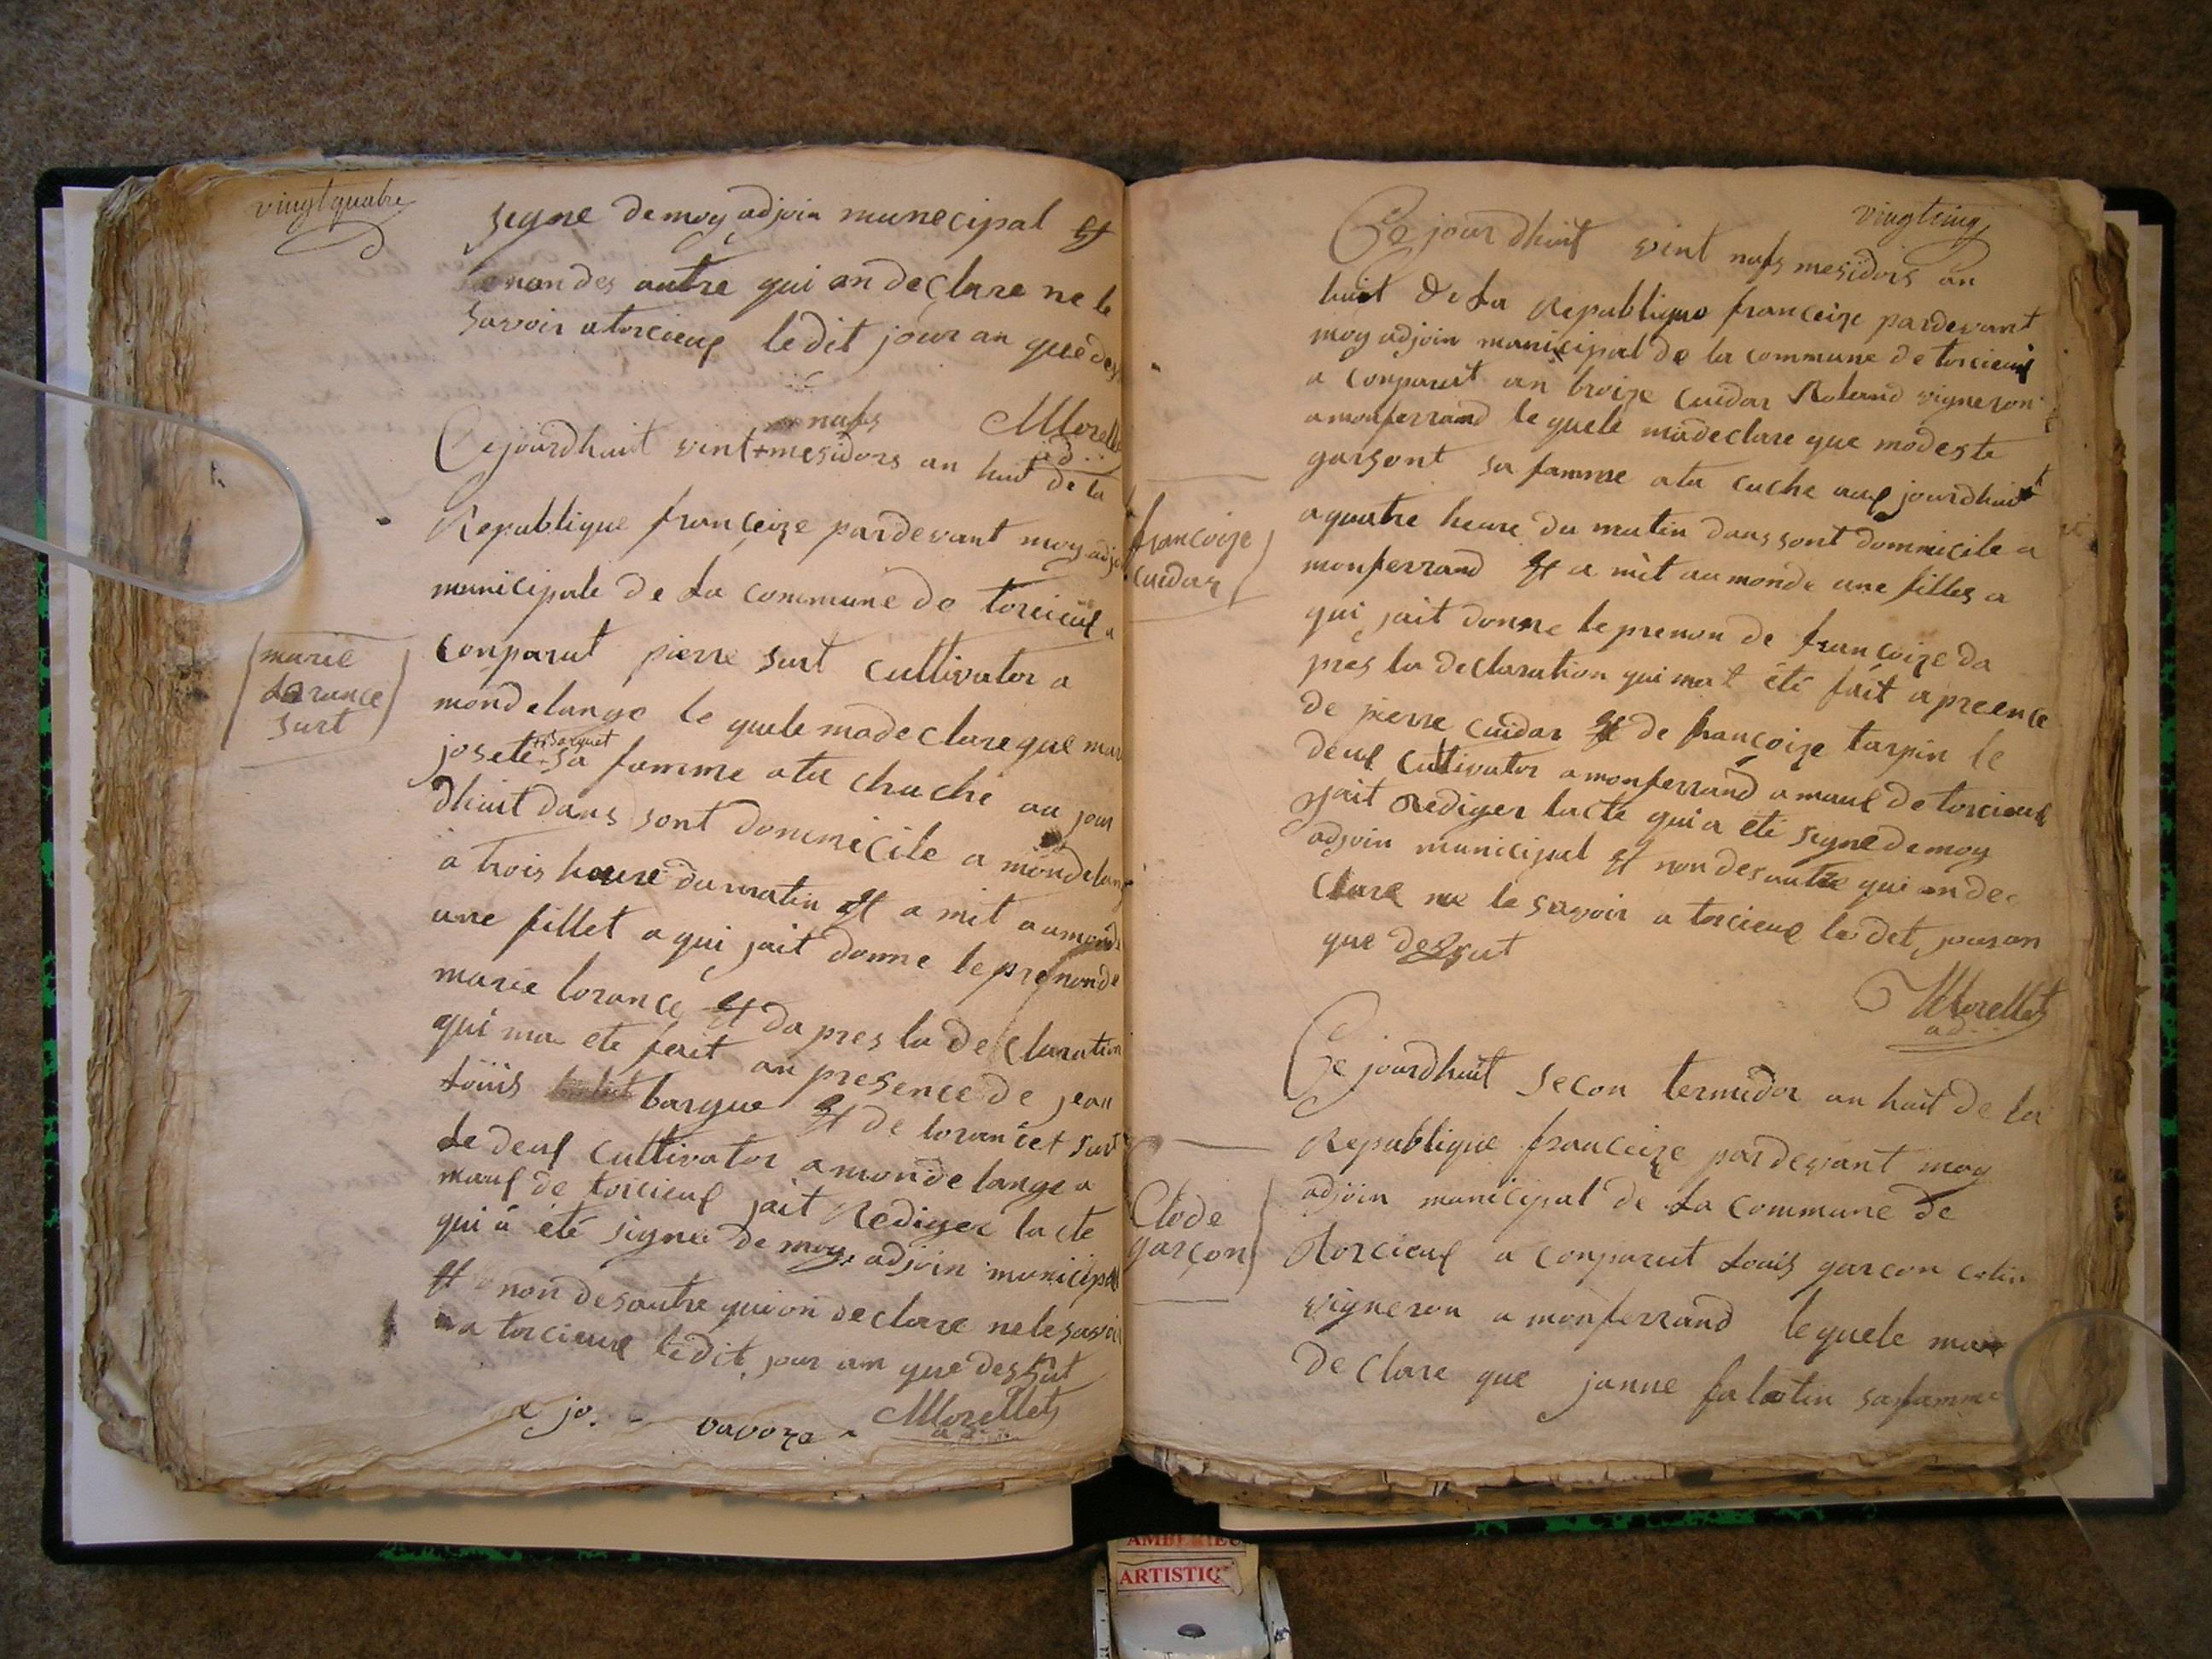 vingt quatre
segne de moy adjoin munecipal et
non des autre qui an declare ne le
savoir a torcieuf le dit jour an que des
Morellet
ad
nufs
Ce jourdhuit vint + mesidors an huit de la
Republique françeize pardevant moy adjo
municipale de La commune de torcieuf a
conparut pierre surt cultivator a
mondelange le quele ma declare que mari
+ Barquet
josete + sa famme a tu chuche au jour
dhuit dans sont dommicile a mondelang
a trois heure du matin et a mit au monde
une fillet a qui jait donne le prenon de
marie lorance et da pres la declaration
qui ma ete ferit an presence de jean
Louis barque et de lorancet surt
Le deuf cultivator a mondelange a
mauf de torcieuf jait Rediger lacte
qui a été signé de moy adjoin municipal
et non des autre qui on declare ne le savoir
a torcieuf le dit jour an que dessut
Morellet
ad
marie
Lorance
surt
vingt cinq
Ce jourdhuit vint nufs mesidors an
huit De La Republique franceize pardevant
moy adjoin municipal de la commune de torcieuf
a conparut an broize cuidar Roland vigneron
a monferrand le quele ma declare que modeste
garsont sa famme a tu cuche auf jourdhuit
a quatre heure du matin dans sont dommicile a
monferrand et a mit au monde une filles a
qui jait donne le prenon de françoize da
pres la declaration qui mat été fait a preence
de pierre cuidar et de françoize tarpin le
deuf cultivator a monferrand a mauf de torcieuf
jait Rediger lacte qui a été signe de moy
adjoin municipal et non des autre qui on de
clare ne le savoir a torcieuf le det jour an
que dessut
Morellet
ad
françoize
cuidar
Ce jourdhuit secon termidor an huit de la
Republique franceize pardevant moy
adjoin municipal de La commune de
Torcieuf a conparut Louis garcon colin
vigneron a monferrand le quele ma
declare que janne falatin sa famme
Clode
garçon
ARTISTIQ